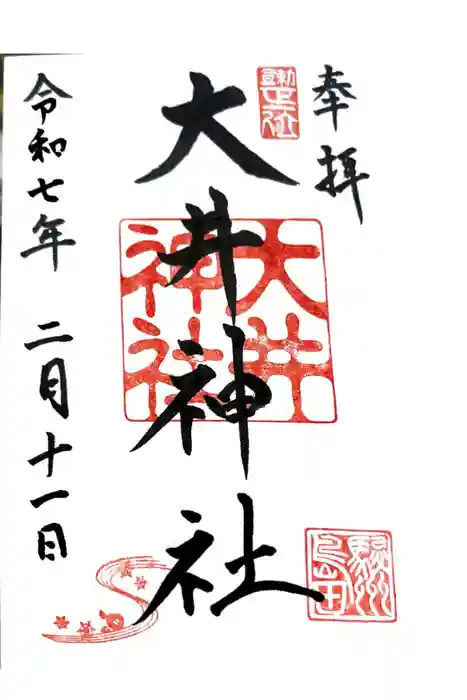 奉拝
大井神社
大井
神社
駿州
島田
令和七年 二月十一日